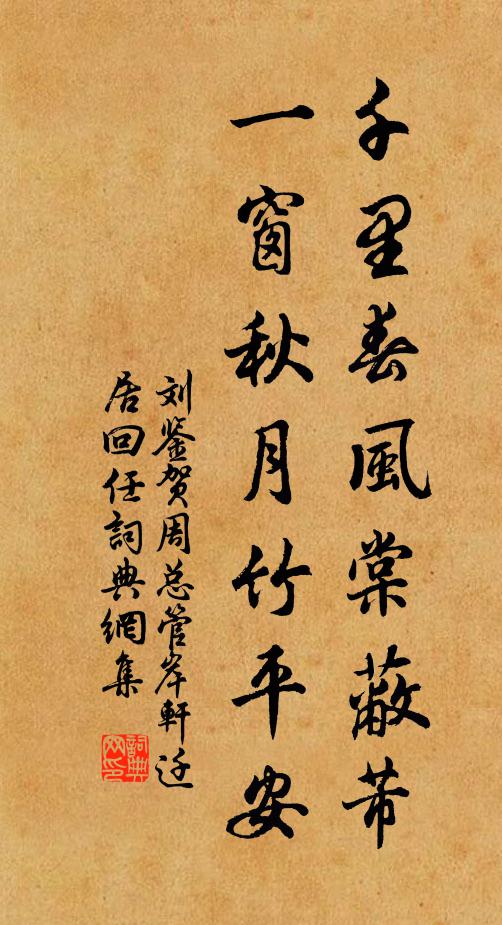 千里春風棠蔽芾
一窗秋月竹平安
刘鉴贺周总管岸軒迁
居回任詞典網集
詞典網印